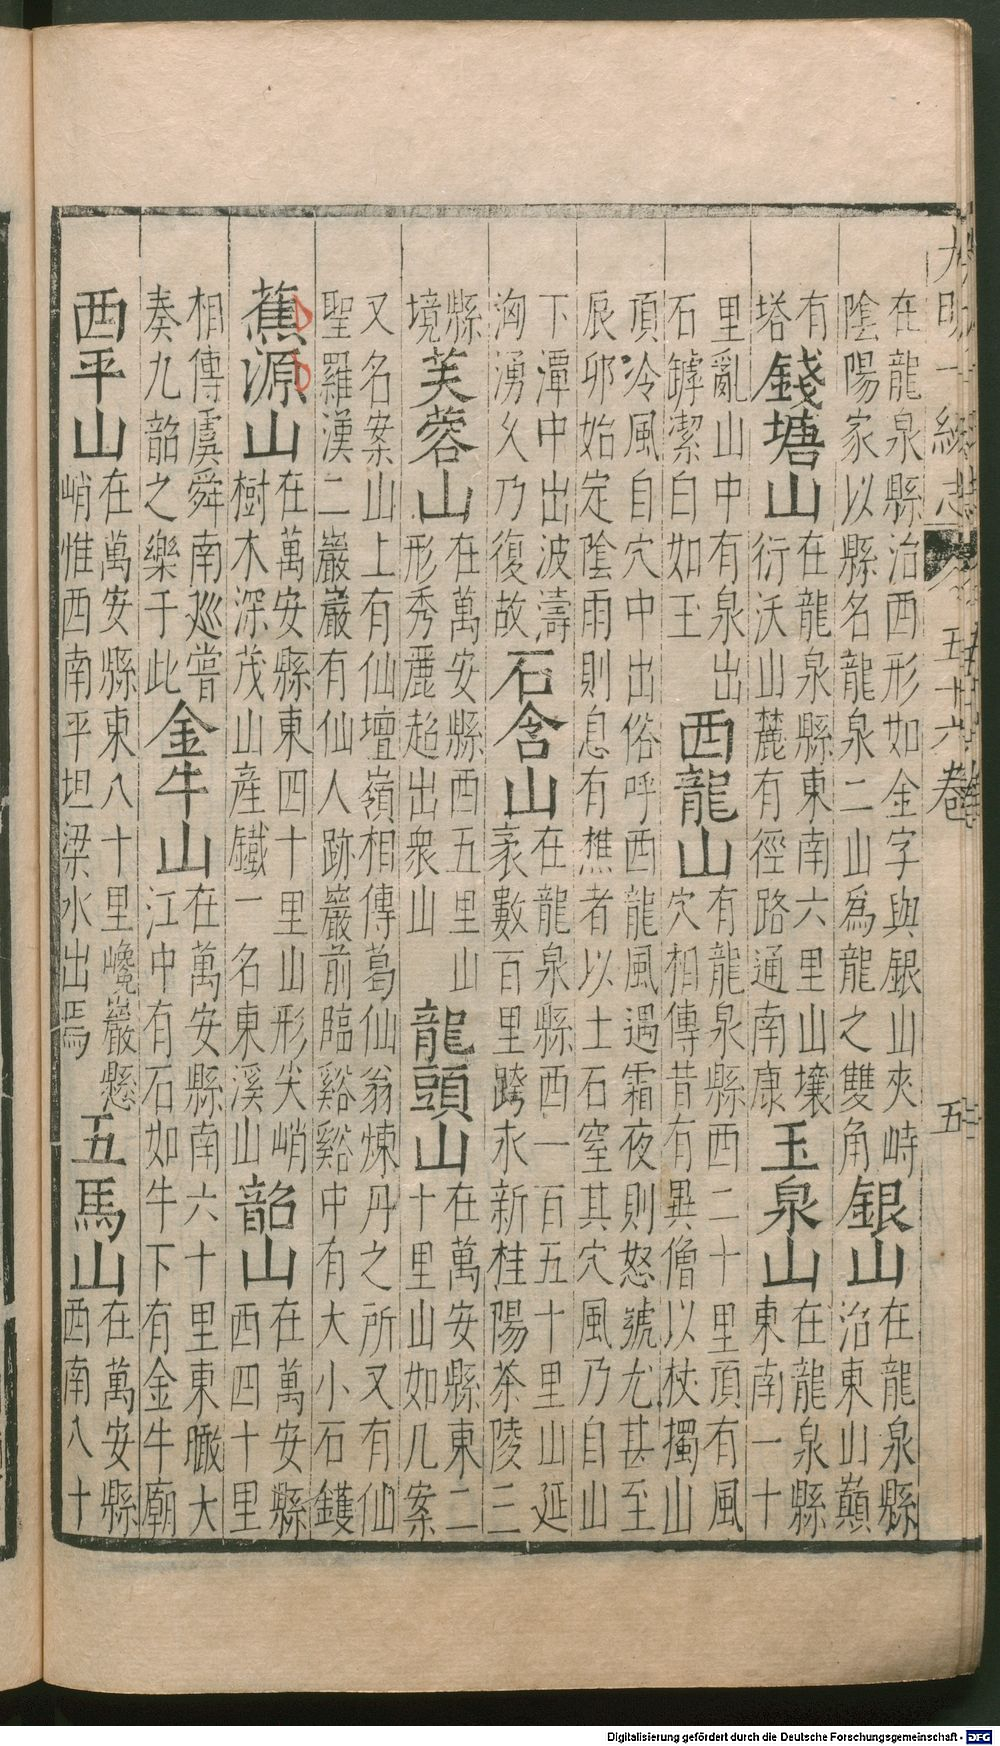 大明一統志 五十六卷 五
在龍泉縣治西形如金字與銀山夾峙
陰陽家以縣名龍泉二山爲龍之雙角
銀山
在龍泉縣
治東山巓
有
塔
錢塘山
在龍泉縣東南六里山壤
衍沃山麓有徑路通南康
玉泉山
在龍泉縣
東南一十
里亂山中有泉出
石罅潔白如玉
西龍山
有龍泉縣西二十里頂有風
穴相傳昔有異僧以杖擉山
頂冷風自穴中出俗呼西龍風遇霜夜則怒號尤甚至
辰卯始定陰雨則息有樵者以土石窒其穴風乃自山
下潭中出波濤
洶湧久乃復故
石含山
在龍泉縣西一百五十里山延
袤數百里跨永新桂陽茶陵三
縣
境
芙蓉山
在萬安縣西五里山
形秀麗超出衆山
龍頭山
在萬安縣東二
十里山如几案
又名案山上有仙壇嶺相傳葛仙翁煉丹之所又有仙
聖羅漢二巖巖有仙人跡巖前臨谿谿中有大小石鑊
蕉源山
在萬安縣東四十里山形尖峭
樹木深茂山産鐵一名東溪山
韶山
在萬安縣
西四十里
相傳虞舜南廵嘗
奏九韶之樂于此
金牛山
在萬安縣南六十里東瞰大
江中有石如牛下有金牛廟
西平山
在萬安縣東八十里巉巖懸
峭惟西南平坦梁水出焉
五馬山
在萬安縣
西南八十
Digitalisierung gefördert durch die Deutsche Forschungsgemeinschaft - DFG